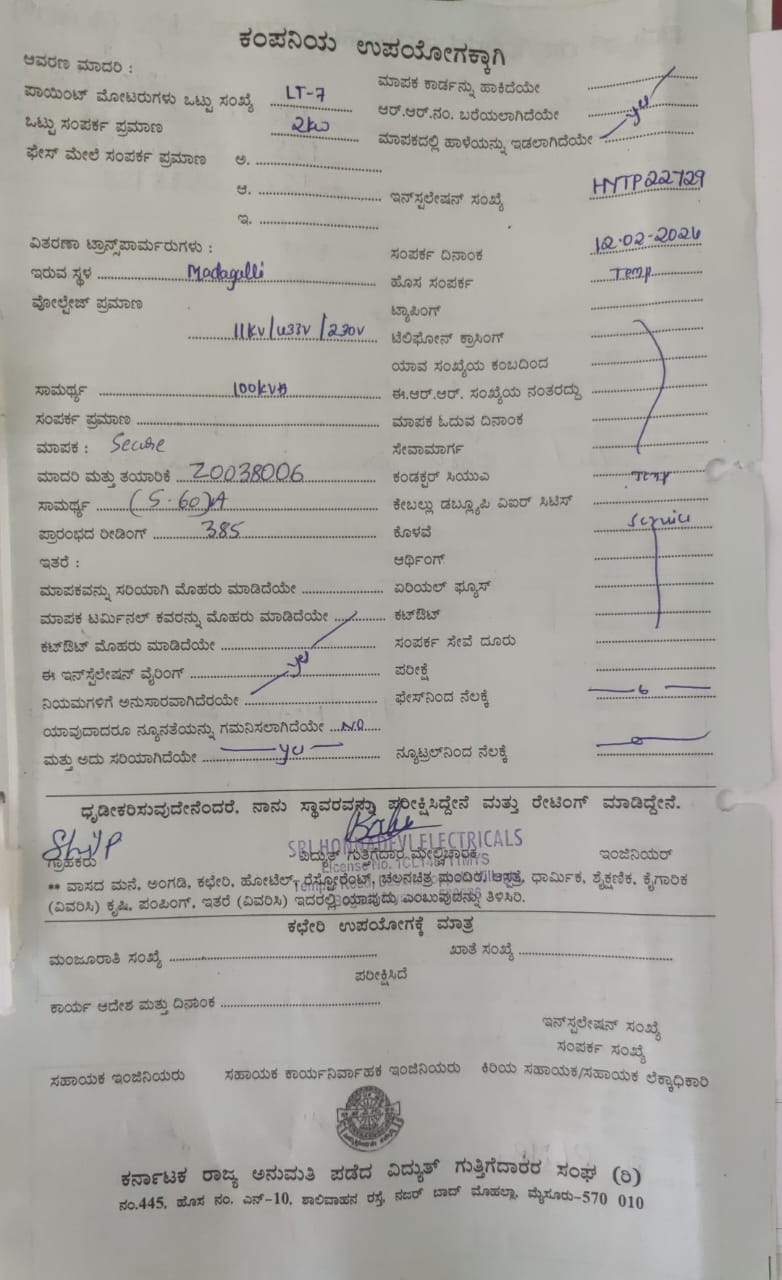 ಕಂಪನಿಯ ಉಪಯೋಗಕ್ಕಾಗಿ
ಆವರಣ ಮಾದರಿ :
ಪಾಯಿಂಟ್ ಮೋಟರುಗಳು ಒಟ್ಟು ಸಂಖ್ಯೆ LT-7
ಒಟ್ಟು ಸಂಪರ್ಕ ಪ್ರಮಾಣ 2kw
ಫೇಸ್ ಮೇಲೆ ಸಂಪರ್ಕ ಪ್ರಮಾಣ ಅ.
ಆ.
ಇ.
ವಿತರಣಾ ಟ್ರಾನ್ಸ್‌ಪಾರ್ಮರುಗಳು :
ಇರುವ ಸ್ಥಳ Madagalli
ವೋಲ್ಟೇಜ್ ಪ್ರಮಾಣ
11kv/433V/230V
ಸಾಮರ್ಥ್ಯ 100kVA
ಸಂಪರ್ಕ ಪ್ರಮಾಣ
ಮಾಪಕ : Secure
ಮಾದರಿ ಮತ್ತು ತಯಾರಿಕೆ Z0038006
ಸಾಮರ್ಥ್ಯ (5-60)A
ಪ್ರಾರಂಭದ ರೀಡಿಂಗ್ 385
ಇತರೆ :
ಮಾಪಕವನ್ನು ಸರಿಯಾಗಿ ಮೊಹರು ಮಾಡಿದೆಯೇ
ಮಾಪಕ ಟರ್ಮಿನಲ್ ಕವರನ್ನು ಮೊಹರು ಮಾಡಿದೆಯೇ
ಕಟ್‌ಔಟ್ ಮೊಹರು ಮಾಡಿದೆಯೇ
ಈ ಇನ್‌ಸ್ಟೆಲೇಷನ್ ವೈರಿಂಗ್ yes
ನಿಯಮಗಳಿಗೆ ಅನುಸಾರವಾಗಿದೆರಯೇ
ಯಾವುದಾದರೂ ನ್ಯೂನತೆಯನ್ನು ಗಮನಿಸಲಾಗಿದೆಯೇ NO
ಮತ್ತು ಅದು ಸರಿಯಾಗಿದೆಯೇ yes
ಮಾಪಕ ಕಾರ್ಡನ್ನು ಹಾಕಿದೆಯೇ
ಆರ್.ಆರ್.ನಂ. ಬರೆಯಲಾಗಿದೆಯೇ yes
ಮಾಪಕದಲ್ಲಿ ಹಾಳೆಯನ್ನು ಇಡಲಾಗಿದೆಯೇ
ಇನ್‌ಸ್ಪಲೇಷನ್ ಸಂಖ್ಯೆ HYTP22729
ಸಂಪರ್ಕ ದಿನಾಂಕ 12-02-2026
ಹೊಸ ಸಂಪರ್ಕ Temp
ಟ್ಯಾಪಿಂಗ್
ಟೆಲಿಫೋನ್ ಕ್ರಾಸಿಂಗ್
ಯಾವ ಸಂಖ್ಯೆಯ ಕಂಬದಿಂದ
ಈ.ಆರ್.ಆರ್. ಸಂಖ್ಯೆಯ ನಂತರದ್ದು
ಮಾಪಕ ಓದುವ ದಿನಾಂಕ
ಸೇವಾಮಾರ್ಗ
ಕಂಡಕ್ಟರ್ ಸಿಯುಎ Temp
ಕೇಬಲ್ಲು ಡಬ್ಲ್ಯೂಪಿ ವಿಐರ್ ಸಿಟಿಸ್
ಕೊಳವೆ Service
ಆರ್ಥಿಂಗ್
ಏರಿಯಲ್ ಫ್ಯೂಸ್
ಕಟ್‌ಔಟ್
ಸಂಪರ್ಕ ಸೇವೆ ದೂರು
ಪರೀಕ್ಷೆ
ಫೇಸ್‌ನಿಂದ ನೆಲಕ್ಕೆ
ನ್ಯೂಟ್ರಲ್‌ನಿಂದ ನೆಲಕ್ಕೆ
ಧೃಡೀಕರಿಸುವುದೇನೆಂದರೆ, ನಾನು ಸ್ಥಾವರವನ್ನು ಪರೀಕ್ಷಿಸಿದ್ದೇನೆ ಮತ್ತು ರೇಟಿಂಗ್ ಮಾಡಿದ್ದೇನೆ.
SRI HONNADEVI ELECTRICALS
ಗ್ರಾಹಕರು ವಿದ್ಯುತ್ ಗುತ್ತಿಗೆದಾರ ಮೇಲ್ವಿಚಾರಕ ಇಂಜಿನಿಯರ್
** ವಾಸದ ಮನೆ, ಅಂಗಡಿ, ಕಛೇರಿ, ಹೋಟೆಲ್, ರೆಸ್ಟೋರೆಂಟ್, ಚಲನಚಿತ್ರ ಮಂದಿರ, ಆಸ್ಪತ್ರೆ, ಧಾರ್ಮಿಕ, ಶೈಕ್ಷಣಿಕ, ಕೈಗಾರಿಕ
(ವಿವರಿಸಿ) ಕೃಷಿ, ಪಂಪಿಂಗ್, ಇತರೆ (ವಿವರಿಸಿ) ಇದರಲ್ಲಿ ಯಾವುದು ಎಂಬುವುದನ್ನು ತಿಳಿಸಿರಿ.
ಕಛೇರಿ ಉಪಯೋಗಕ್ಕೆ ಮಾತ್ರ
ಮಂಜೂರಾತಿ ಸಂಖ್ಯೆ ಖಾತೆ ಸಂಖ್ಯೆ
ಪರೀಕ್ಷಿಸಿದೆ
ಕಾರ್ಯ ಆದೇಶ ಮತ್ತು ದಿನಾಂಕ
ಇನ್‌ಸ್ಪಲೇಷನ್ ಸಂಖ್ಯೆ
ಸಂಪರ್ಕ ಸಂಖ್ಯೆ
ಸಹಾಯಕ ಇಂಜಿನಿಯರು ಸಹಾಯಕ ಕಾರ್ಯನಿರ್ವಾಹಕ ಇಂಜಿನಿಯರು ಕಿರಿಯ ಸಹಾಯಕ/ಸಹಾಯಕ ಲೆಕ್ಕಾಧಿಕಾರಿ
ಕರ್ನಾಟಕ ರಾಜ್ಯ ಅನುಮತಿ ಪಡೆದ ವಿದ್ಯುತ್ ಗುತ್ತಿಗೆದಾರರ ಸಂಘ (ರಿ)
ನಂ.445, ಹೊಸ ನಂ. ಎನ್-10, ಶಾಲಿವಾಹನ ರಸ್ತೆ, ನಜರ್ ಬಾದ್ ಮೊಹಲ್ಲಾ, ಮೈಸೂರು-570 010